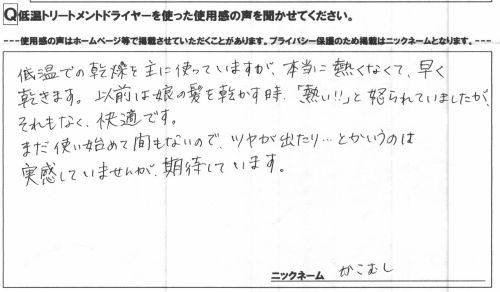 Q低温トリートメントドライヤーを使った使用感の声を聞かせてください。
---使用感の声はホームページ等で掲載させていただくことがあります。プライバシー保護のため掲載はニックネームとなります。---
低温での乾燥を主に使っていますが、本当に熱くなくて、早く
乾きます。以前は娘の髪を乾かす時、「熱い!!」と怒られていましたが、
それもなく、快適です。
まだ使い始めて間もないので、ツヤが出たり…とかいうのは
実感していませんが、期待しています。
ニックネーム かこむし